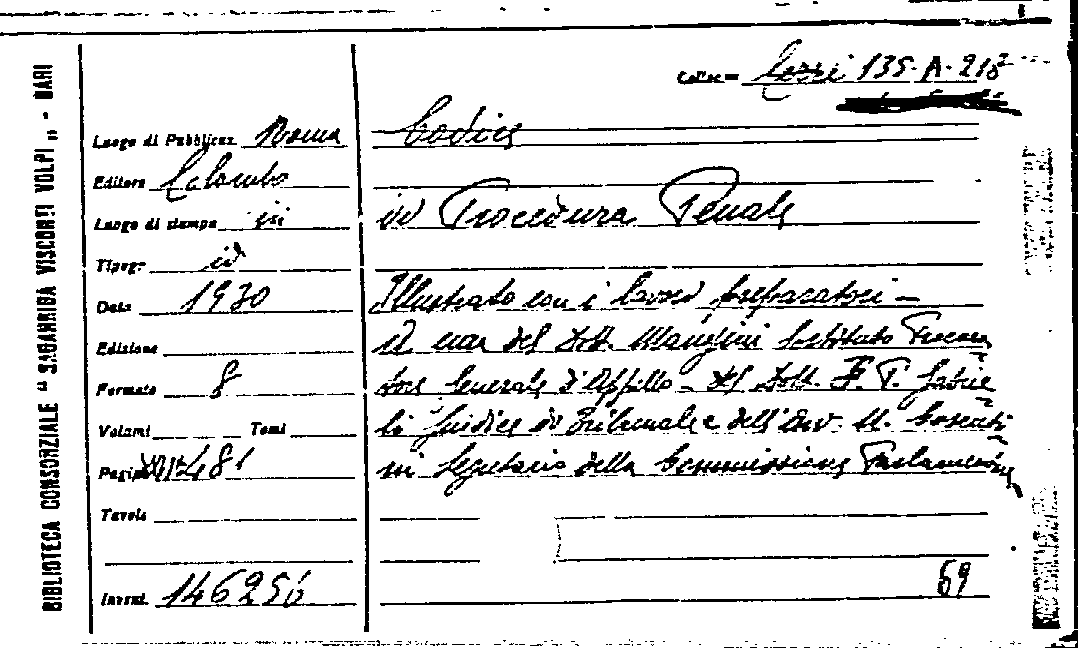 BIBLIOTECA CONSORZIALE "SAGARRIGA VISCONTI VOLPI" - BARI
Colloc. 135-A-218
Luogo di Pubblicaz. Roma
Editore Colombo
Luogo di stampa ivi
Tipogr. id
Data 1930
Edizione
Formato 8
Volumi Tomi
Pagine 481
Tavole
Invent. 146256
Codice
di Procedura Penale
Illustrato con i lavori preparatori -
A cura del Dott. Mangini Sostituto Procura
tore Generale d'Appello - del Dott. F. P. Gabrie
li Giudice di Tribunale e dell'avv. U. Cosenti
ni Segretario della Commissione Parlamentare
69